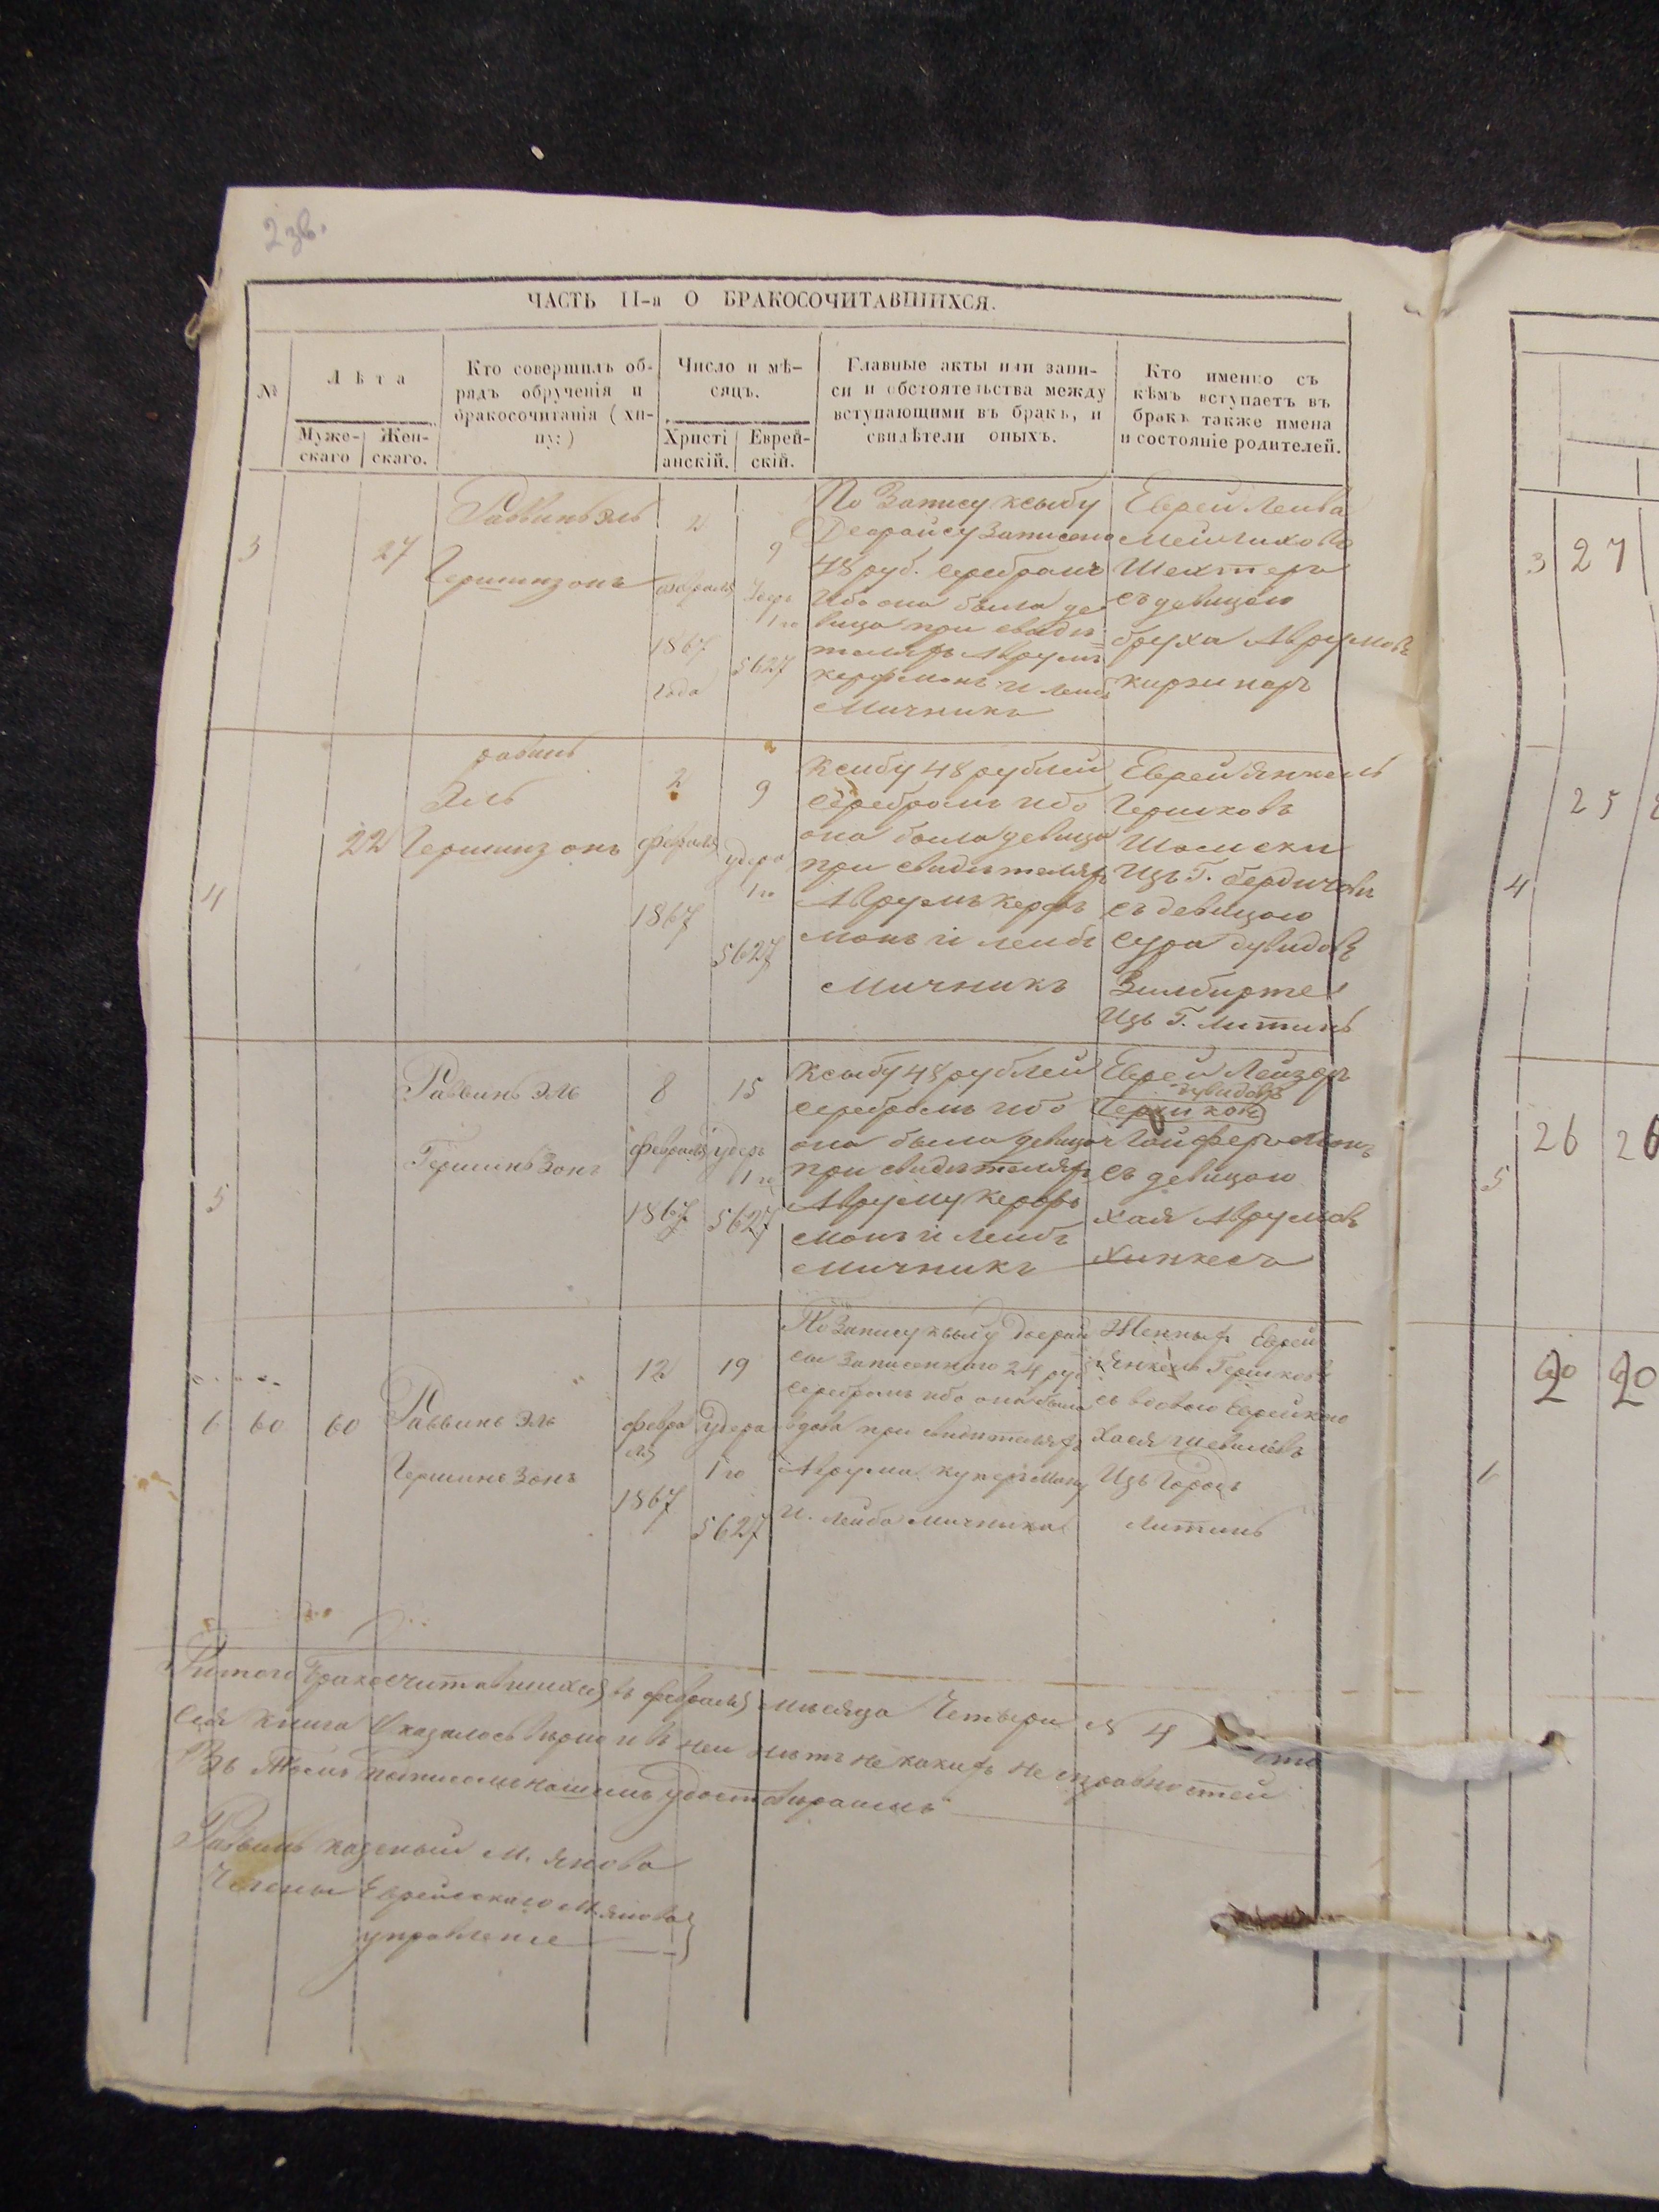 2 зв.
ЧАСТЬ II-я О БРАКОСОЧИТАВШИХСЯ.
№
Лѣта
Муже-
скаго
Жен-
скаго.
Кто совершилъ об-
рядъ обрученія и
бракосочитанія (хи-
пу:)
Число и мѣ-
сяцъ.
Христі
анскій.
Еврей-
скій.
Главные акты или запи-
си и обстоятельства между
вступающими въ бракъ, и
свидѣтели оныхъ.
Кто именно съ
кѣмъ вступаетъ въ
бракъ также имена
и состояніе родителей.
3
27
Раввинъ Эль
Гершинзонъ
2
февраля
1867
года
9
1го
5627
По Запису ксыбу
Деорайсу Записано
48 руб. серебромъ
Ибо она была де
вица при свиде
телехъ Аврумъ
керфманъ и Лейбъ
Мичникъ
Еврей Лейба
Шехтеръ
съ девицою
бруха Аврумовъ
4
22
рабинъ
Эль
Гершинзонъ
2
февраля
1867
9
удера
1го
5627
Ксыбу 48 рублей
серебромъ ибо
она была девица
при свидетеляхъ
Аврумъ керфъ
манъ и лейбъ
Мичникъ
Еврей Янкель
Гершковъ
Изъ Г. бердичевъ
съ девицою
сура дувидовъ
Изъ Г. Литинъ
5
Раввинъ Эль
Гершинъ Зонъ
8
февраля
1867
15
удеръ
1го
5627
Ксыбу 48 рублей
серебромъ ибо
она была девица
при свидетеляхъ
Авруму керфъ
манъ и Лейбъ
Мичникъ
Еврей Лейзеръ
дувидовъ
съ девицою
хая Аврумовъ
хинкесъ
6
60
60
Раввинъ Эль
Гершинъ Зонъ
12
февра
ля
1867
19
удера
1го
5627
По Запису ксыбу деорай
са записанного 24 руб
серебромъ ибо она была
вдова при свидетеляхъ
Аврума куперману
и Лейба мичника
Янкель Гершковъ
съ вдовою Еврейкою
Хася
Изъ Города
Литинъ
бракосчитавшихся въ февраля месяца Четыри № 4
Сея книга Оказалось верно и в ней нетъ не какихъ не справностей
Въ Темъ подписемъ нашимъ удостовираимъ
Равинъ казеный М. Янова
Члены Еврейскаго М. Янова
управление
3
27
4
25
5
26
26
20
20